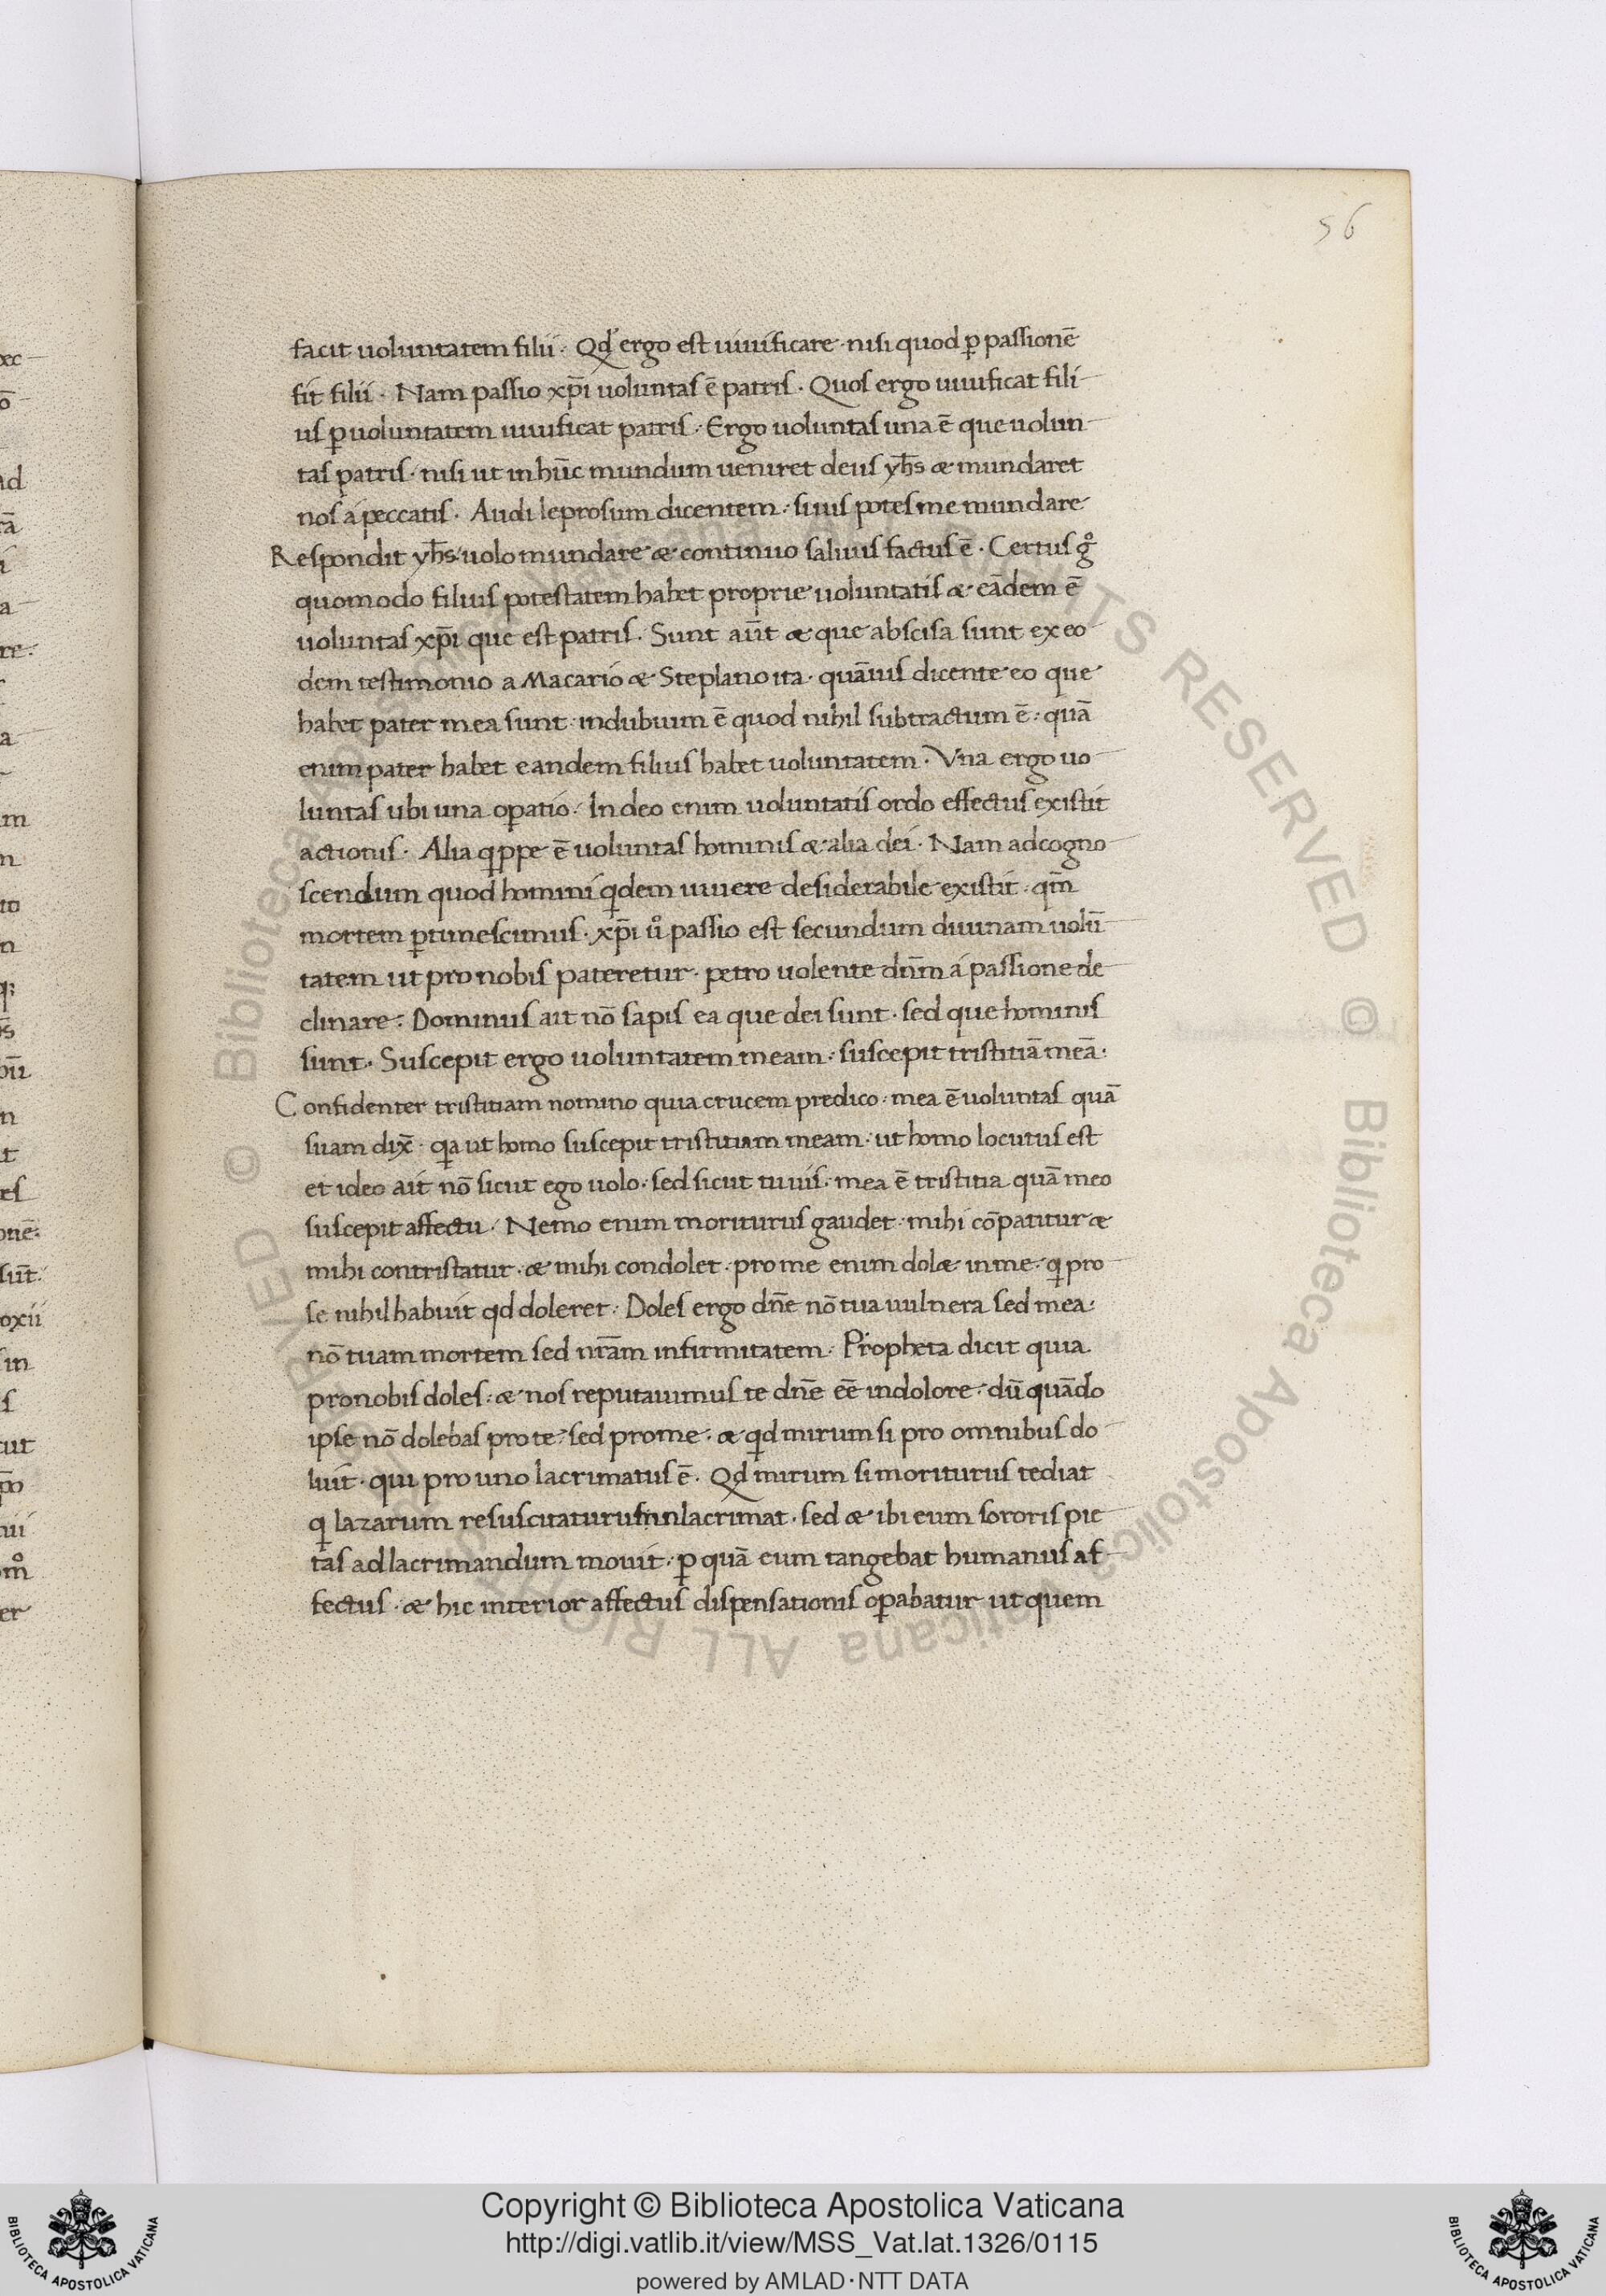 56
facit uoluntatem filii · Qd' ergo est uiuificare · nisi quod ꝑ passionē
fit filii · Nam passio xp̄i uoluntas ē patris · Quos ergo uiuificat fili
us ꝑ uoluntatem uiuificat patris · Ergo uoluntas una ē que uolun
tas patris · nisi ut in hūc mundum ueniret deus yh̄s æ mundaret
nos á peccatis · Audi leprosum dicentem · si uis potes me mundare
Respondit yh̄s · uolo mundare æ continuo saluus factus ē · Certus gͦ
quomodo filius potestatem habet proprie uoluntatis æ eādem ē
uoluntas xp̄i que est patris · Sunt aūt æ que abscisa sunt ex eo
dem testimonio a Macario æ Steplano ita · quāuis dicente eo que
habet pater mea sunt · indubium ē quod nihil subtractum ē · quā
enim pater habet eandem filius habet uoluntatem · Vna ergo uo
luntas ubi una oꝑatio · In deo enim uoluntatis ordo effectus existit
actionis · Alia qippe ē uoluntas hominis æ alia dei · Nam ad cogno
scendum quod homini qidem uiuere desiderabile existit · qm̄
mortem ꝑtimescimus · xp̄i uͦ passio est secundum diuinam uolū
tatem ut pro nobis pateretur · petro uolente dn̄m á passione de
clinare · Dominus ait nō sapis ea que dei sunt · sed que hominis
sunt · Suscepit ergo uoluntatem meam · suscepit tristitiā meā ·
Confidenter tristitiam nomino quia crucem predico · mea ē uoluntas quā
suam dix̄ · qia ut homo suscepit tristitiam meam · ut homo locutus est
et ideo ait nō sicut ego uolo · sed sicut tu uis · mea ē tristitia quā meo
suscepit affectu · Nemo enim moriturus gaudet · mihi cōpatitur æ
mihi contristatur · æ mihi condolet · pro me enim dolæ in me · qi pro
se nihil habuit qd doleret · Doles ergo dn̄e nō tua uulnera sed mea ·
nō tuam mortem sed nr̄am infirmitatem · Propheta dicit quia
pro nobis doles · æ nos reputauimus te dn̄e eē in dolore · dū quādo
ipse nō dolebas pro te · sed pro me · æ qid mirum si pro omnibus do
luit · qui pro uno lacrimatus ē · Qd mirum si moriturus tediat
qi lazarum resuscitaturus lacrimat · sed æ ibi eum sororis pie
tas ad lacrimandum mouit · ꝑ quā eum tangebat humanus af
fectus · æ hic interior affectus dispensationis oꝑabatur ut quem
Copyright © Biblioteca Apostolica Vaticana
http://digi.vatlib.it/view/MSS_Vat.lat.1326/0115
powered by AMLAD·NTT DATA